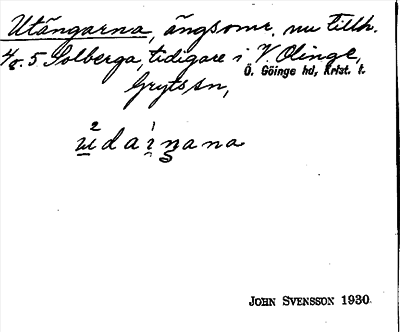 Utängarna, ängsomr. nu tillh.
4/8. 5 Solberga, tidigare i V. Olinge,
Ö. Göinge hd, Krist. l.
Gryts sn,
ùdaìŋana
JOHN SVENSSON 1930.